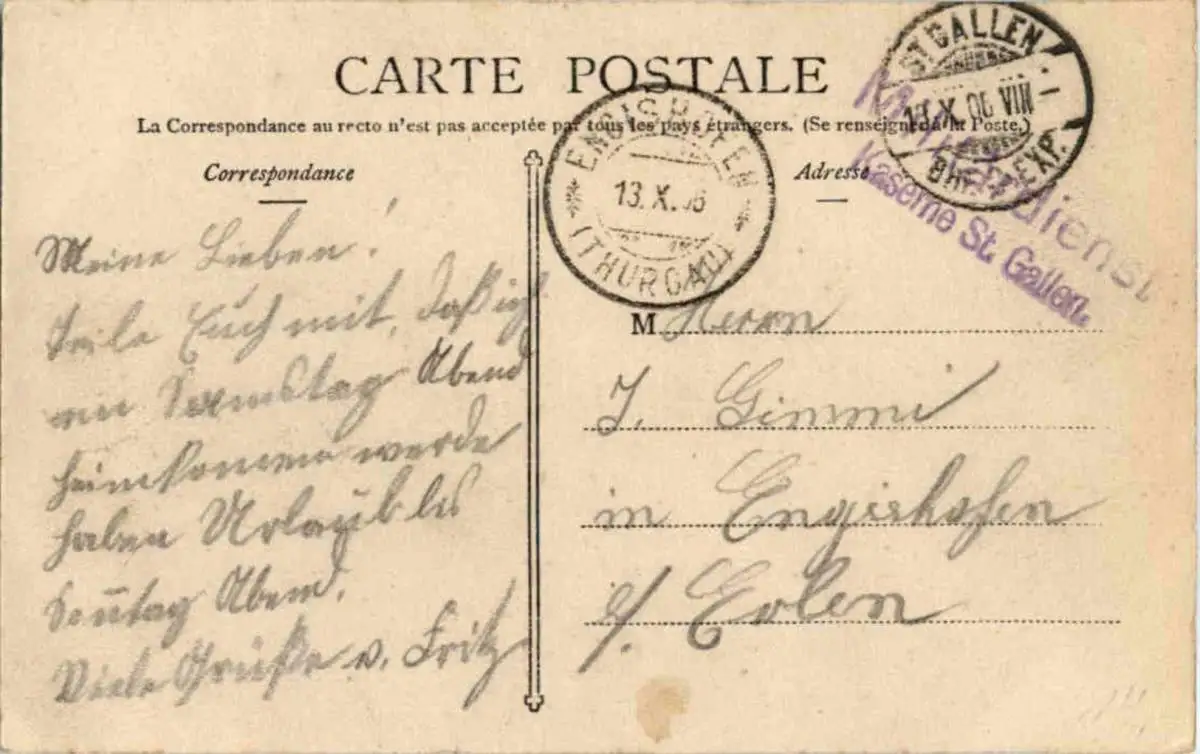 CARTE POSTALE
La Correspondance au recto n'est pas acceptée par tous les pays étrangers. (Se renseigner à la Poste.)
Correspondance
Adresse
ST. GALLEN
13.X.06 VIII
BRF. EXP.
ENGISHOFEN
13.X.06
(THURGAU)
Militärdienst
Kaserne St. Gallen.
Meine Lieben!
Teile Euch mit, daß ich
am Samstag Abend
heimkomen werde
haben Urlaub bis
Sontag Abend.
Viele Grüße v. Fritz
M Herrn
J. Gimmi
in Engishofen
b/. Erlen